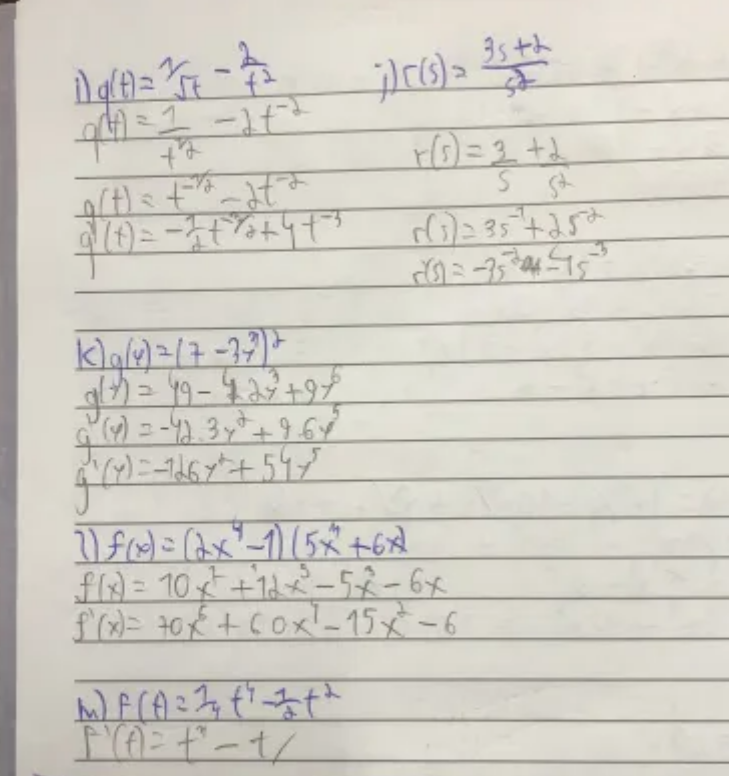 i) g(t) = 1/√t - 2/t²
g(t) = 1/t^½ - 2t⁻²
g(t) = t^-½ - 2t⁻²
g'(t) = -½ t^-3/2 + 4t⁻³
j) r(s) = (3s+2)/s²
r(s) = 3/s + 2/s²
r(s) = 3s⁻¹ + 2s⁻²
r'(s) = -3s⁻² - 4s⁻³
k) g(y) = (7 - 3y³)²
g(y) = 49 - 42y³ + 9y⁶
g'(y) = -42.3y² + 9.6y⁵
g'(y) = -126y² + 54y⁵
l) f(x) = (2x⁴ - 1)(5x³ + 6x)
f(x) = 10x⁷ + 12x⁵ - 5x³ - 6x
f'(x) = 70x⁶ + 60x⁴ - 15x² - 6
m) f(t) = ¼ t⁴ - ½ t²
f'(t) = t³ - t